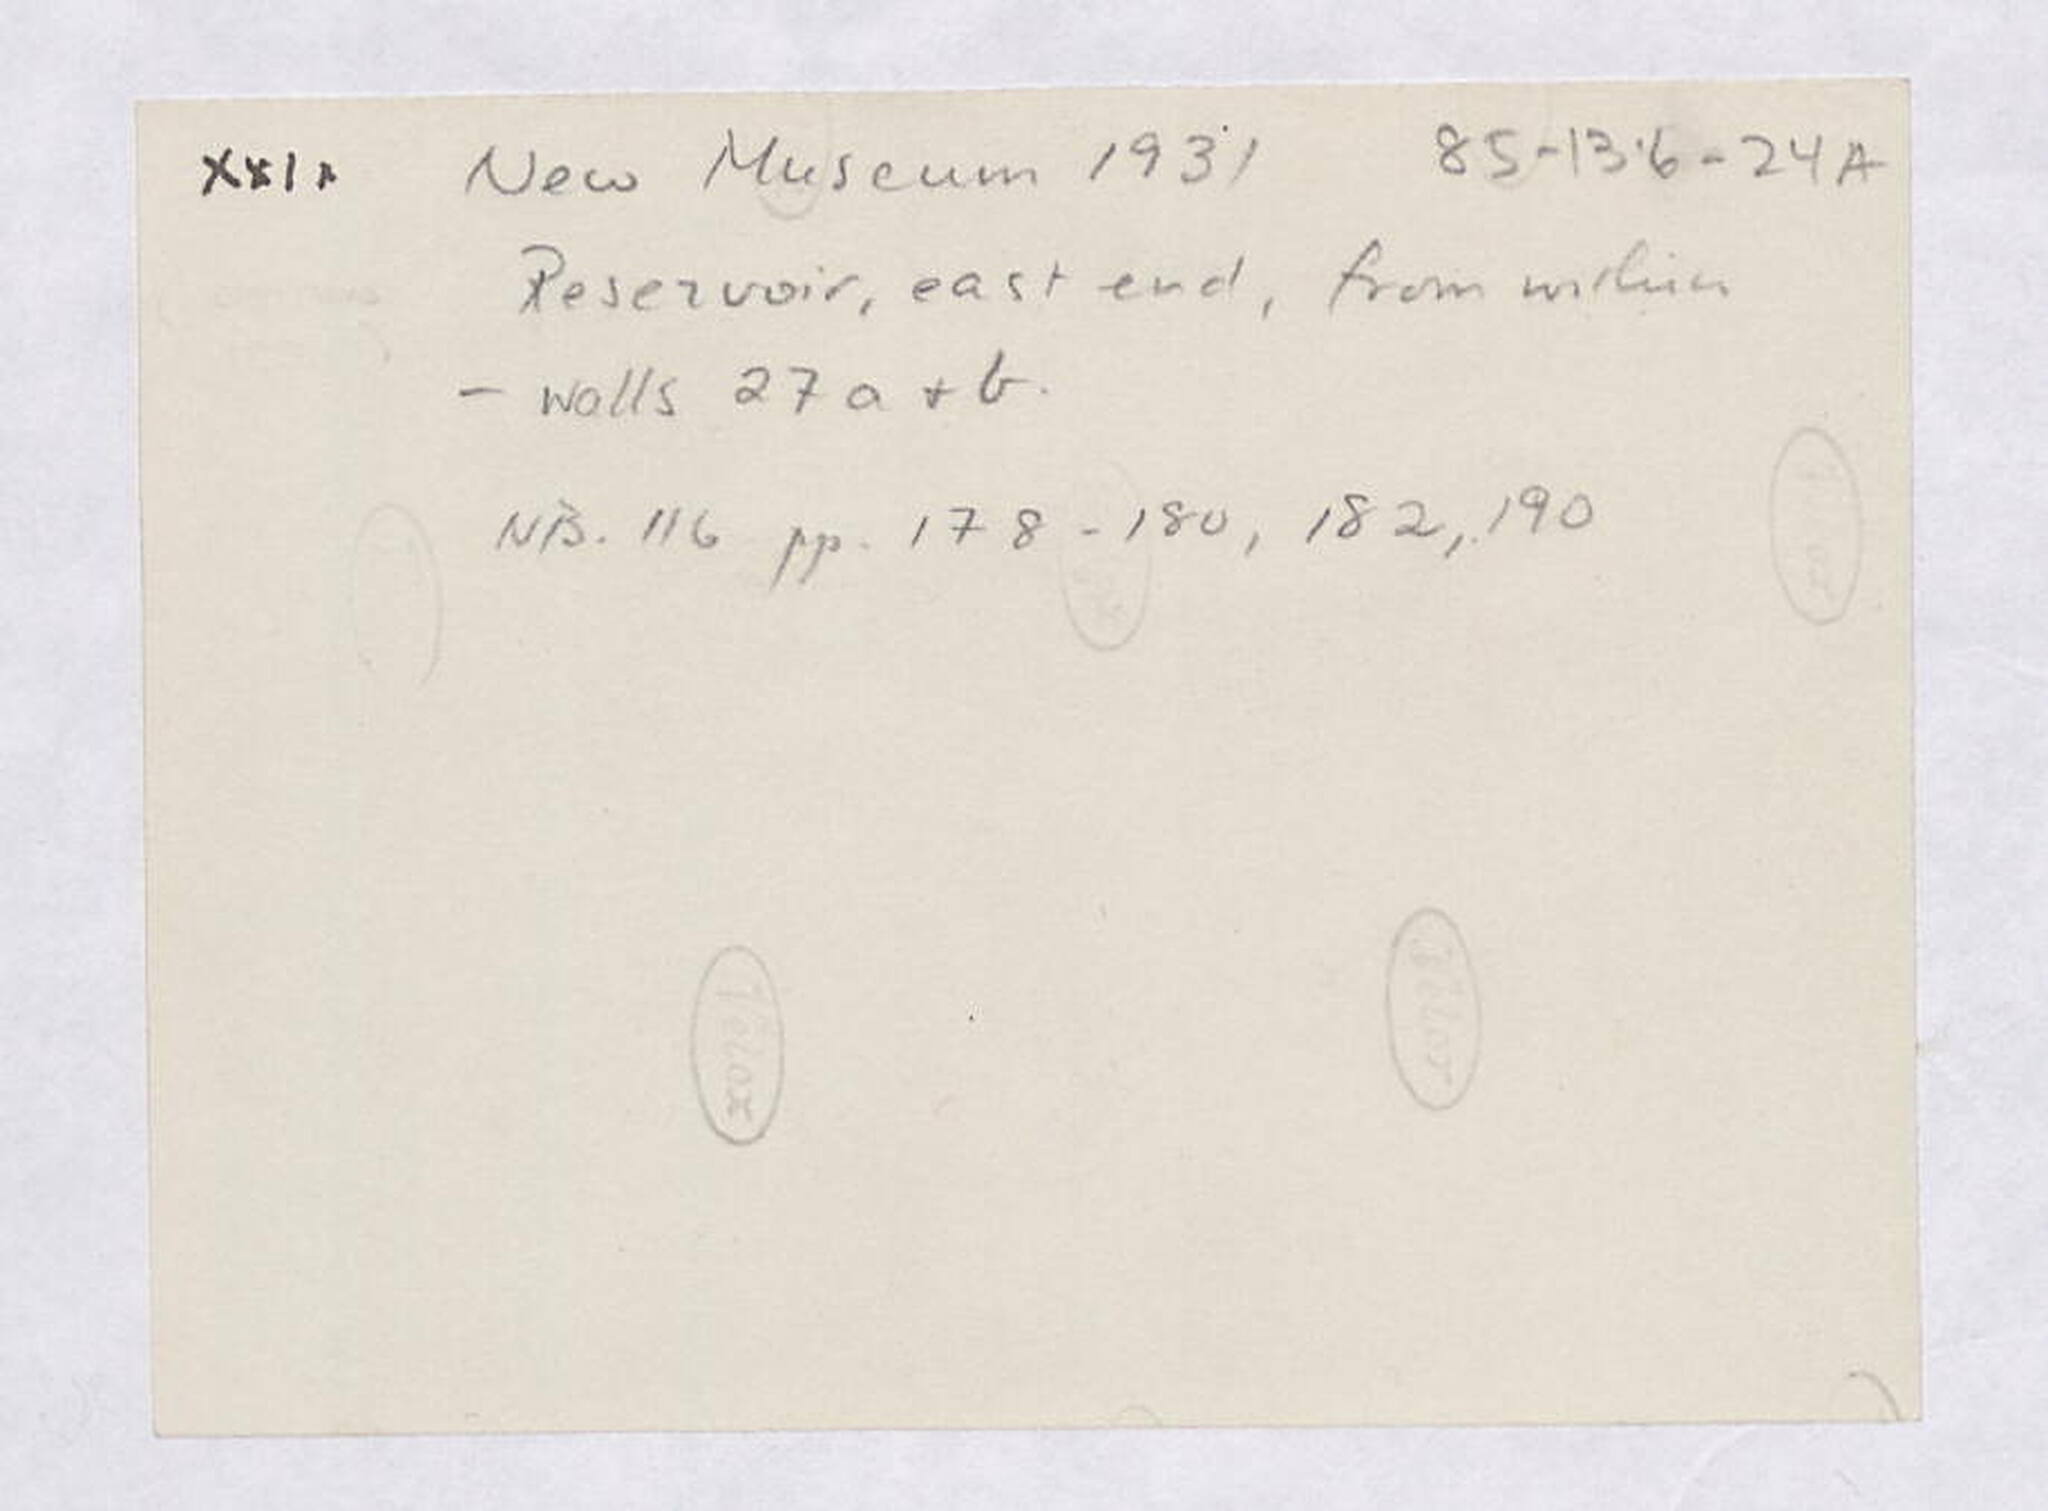 XXIX New Museum 1931 85-13.6-24A
Reservoir, east end, from within
- walls 27 a + b.
NB. 116 pp. 178-180, 182, 190
Telox
Telox